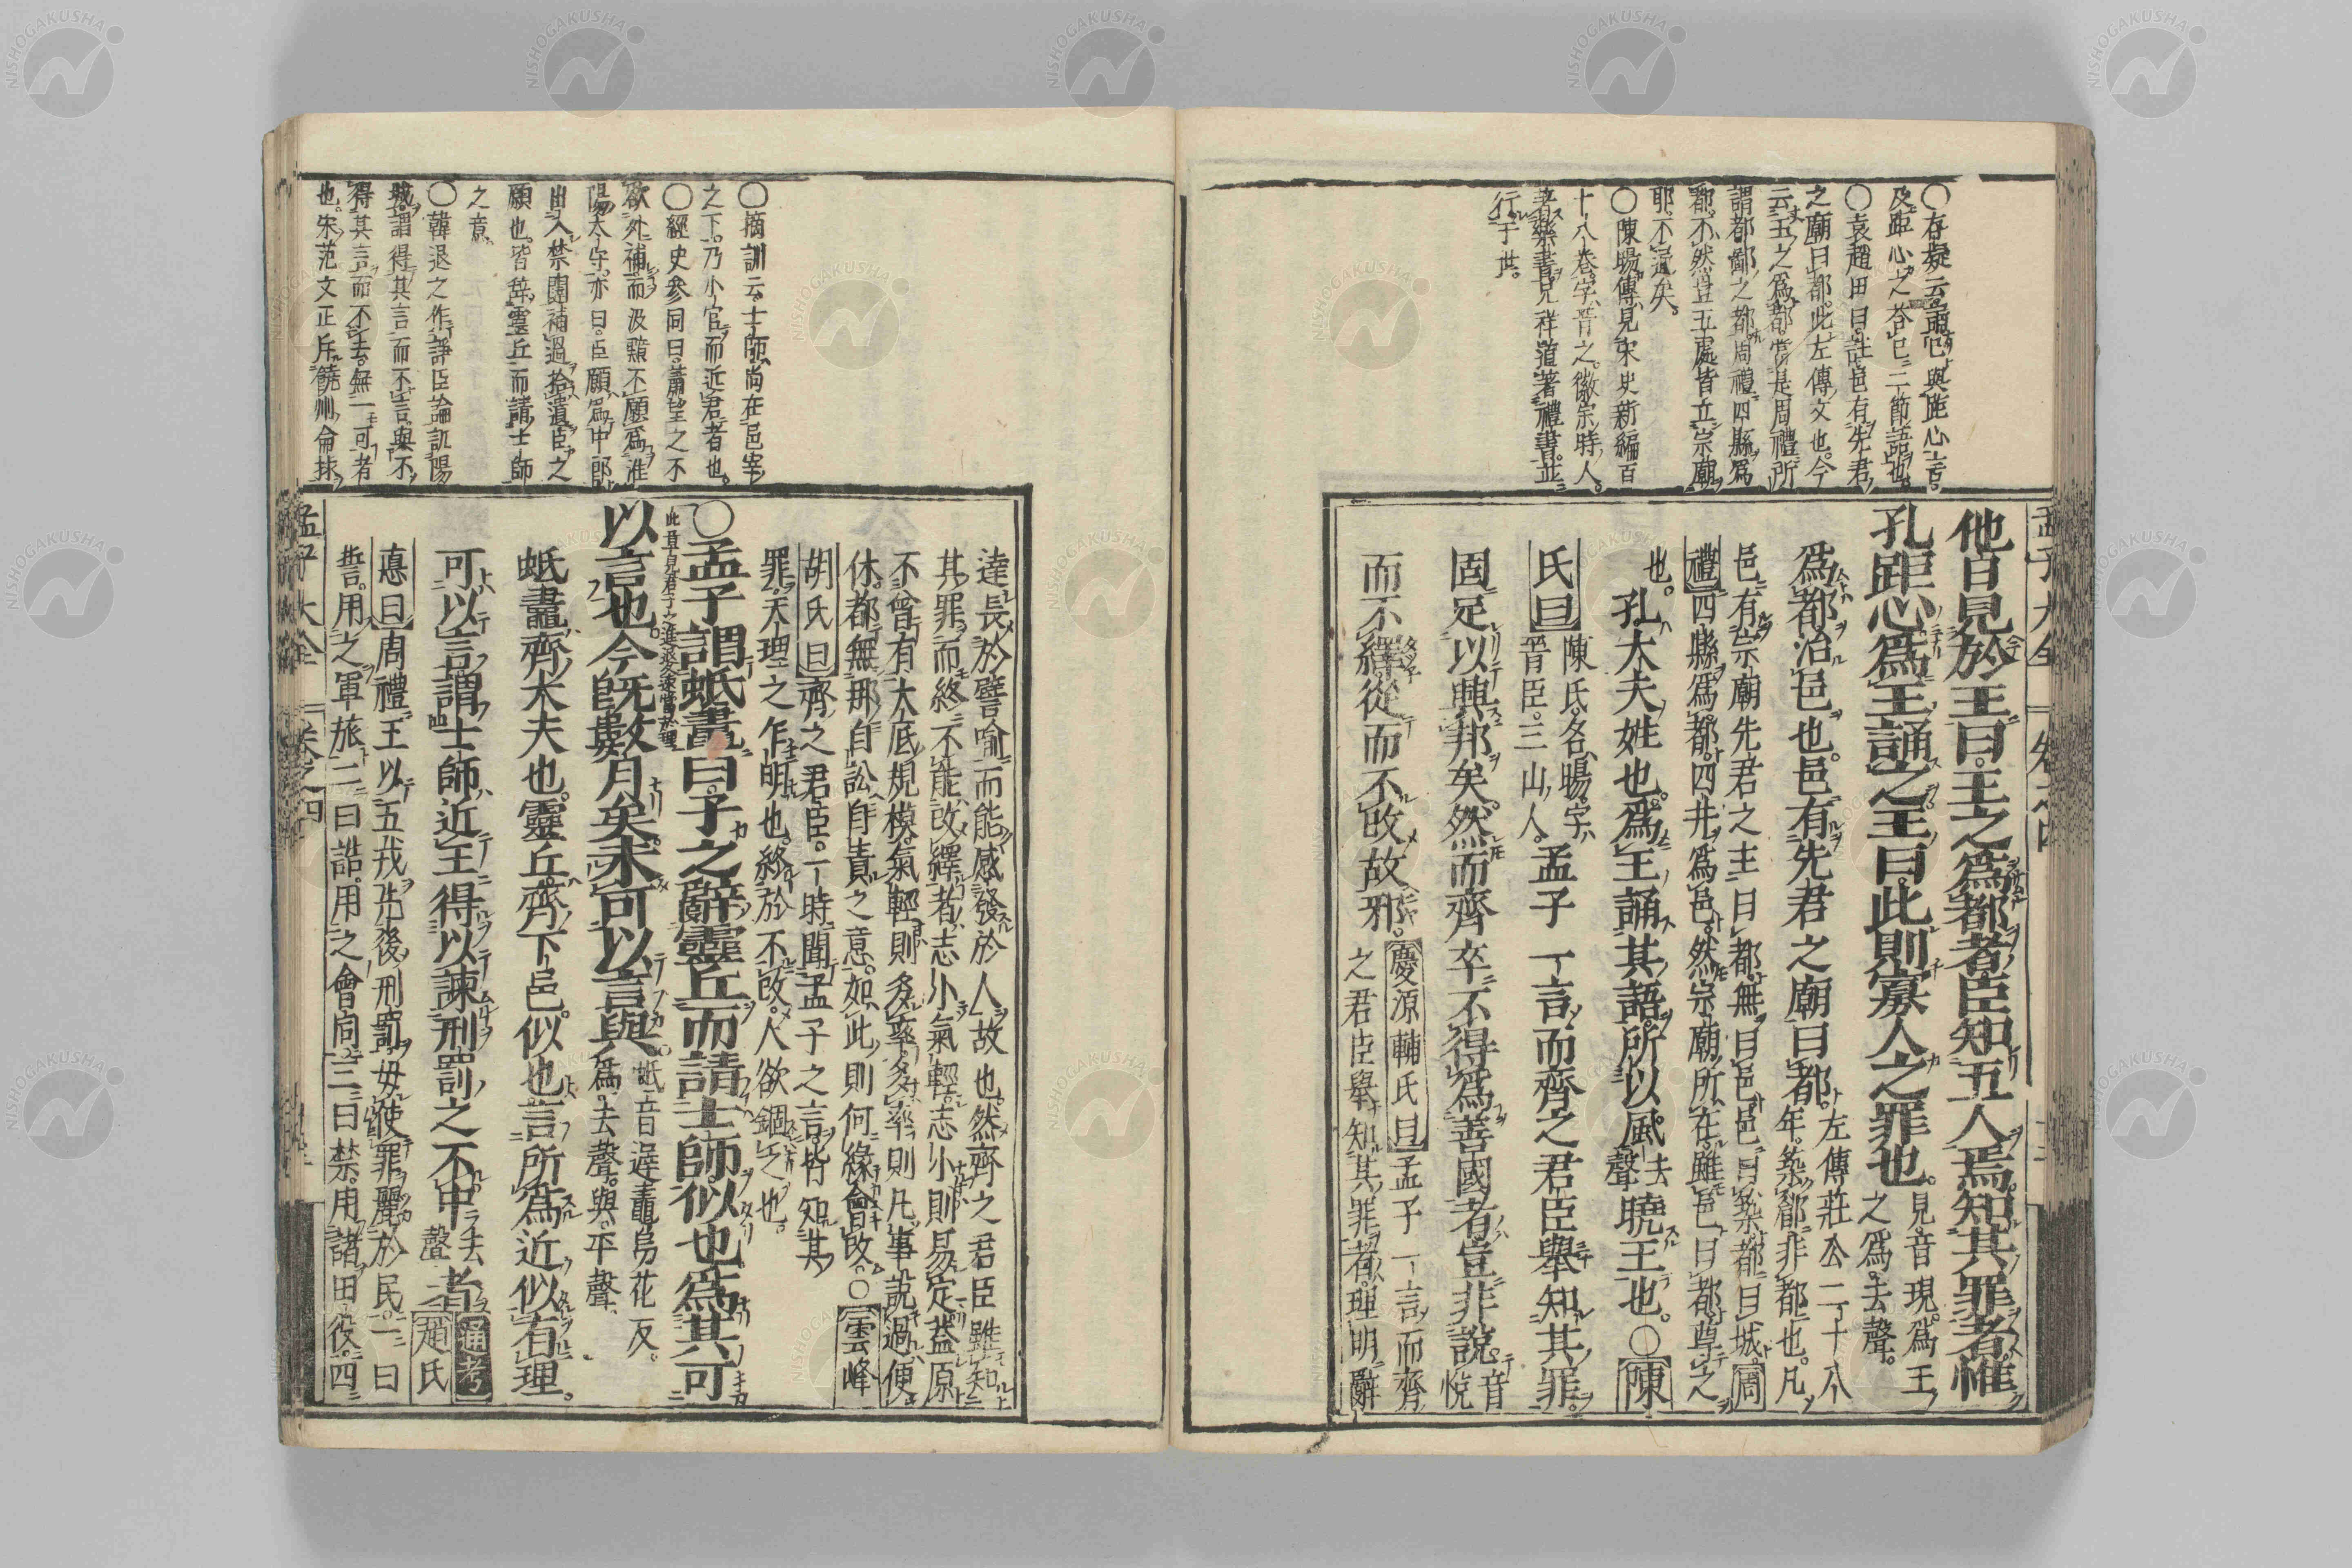 〇存疑云爾它與距心言
及距心之答巳二節語也
〇袁趙田曰註邑有先君
之廟曰都此左傳文也今
云王之爲都當是周禮所
謂都鄙之都周禮四縣爲
都不然豈五處皆立宗廟
耶不逼矣
〇陳暘傳見宋史新編百
十八卷字晉之徽宗時人
著樂書兄祥道著禮書並
行于世
他日見於王曰王之爲都者臣知五人焉知其罪者惟
孔距心爲王誦之王曰此則寡人之罪也見音現爲王
之爲去聲
爲都治邑也邑有先君之廟曰都左傳莊公二十八
年築郿非都也凡
邑有宗廟先君之主曰都無曰邑邑曰築都曰城周
禮四縣爲都四井爲邑然宗廟所在雖邑曰都尊之
也孔大夫姓也爲王誦其語所以風去
聲曉王也〇陳
氏曰陳氏名暘字
晉臣三山人孟子一言而齊之君臣舉知其罪
固足以興邦矣然而齊卒不得爲善國者豈非說音
悅
而不繹從而不改故邪慶源輔氏曰孟子一言而齊
之君臣舉知其罪者理明辭
孟子大全 卷之四
〇摘訓云士師尚在邑宰
之下乃小官而近君者也
〇經史參同曰蕭望之不
欲外補而汲黯不願爲淮
陽太守亦曰臣願爲中郎
出入禁闥補過拾遺臣之
願也皆辭靈丘而請士師
之意
〇韓退之作諍臣論訊陽
城謂得其言而不言與不
得其言而不去無一可者
也宋范文正斥饒州侖捄
達長於譬喻而能感發於人故也然齊之君臣雖知
其罪而終不能改繹者志小氣輕志小則易定蓋原
不曾有大底規模氣輕則多率多率則凡事說過便
休都無那自訟自責之意如此則何緣會改〇雲峰
胡氏曰齊之君臣一時聞孟子之言皆知其
罪天理之乍明也終於不改人欲錮之也
〇孟子謂蚳鼃曰子之辭靈丘而請士師似也爲其可
此章見君子之進退久速當於理
以言也今旣數月矣未可以言與蚳音遲鼃烏花反
爲去聲與平聲
蚳鼃齊大夫也靈丘齊下邑似也言所爲近似有理
可以言謂士師近王得以諫刑罰之不中去
聲者通考趙氏
悳曰周禮王以五戎先後刑罰毋使罪麗於民一曰
誓用之軍旅二曰誥用之會同三曰禁用諸田役四
孟子大全 卷之四